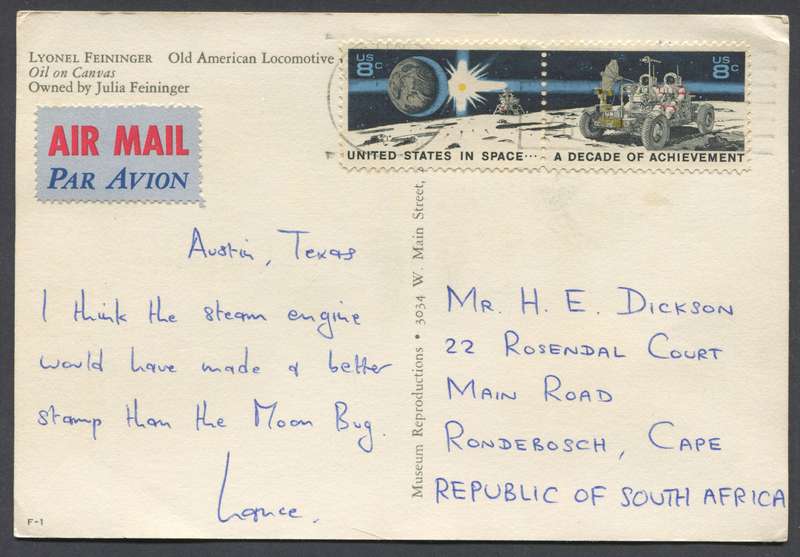 LYONEL FEININGER Old American Locomotive
Oil on Canvas
Owned by Julia Feininger
AIR MAIL
PAR AVION
US 8c
US 8c
UNITED STATES IN SPACE...
A DECADE OF ACHIEVEMENT
Austin, Texas
I think the steam engine
would have made a better
stamp than the Moon Bug.
Lance.
Museum Reproductions • 3034 W. Main Street,
MR. H. E. DICKSON
22 ROSENDAL COURT
MAIN ROAD
RONDEBOSCH, CAPE
REPUBLIC OF SOUTH AFRICA
F-1